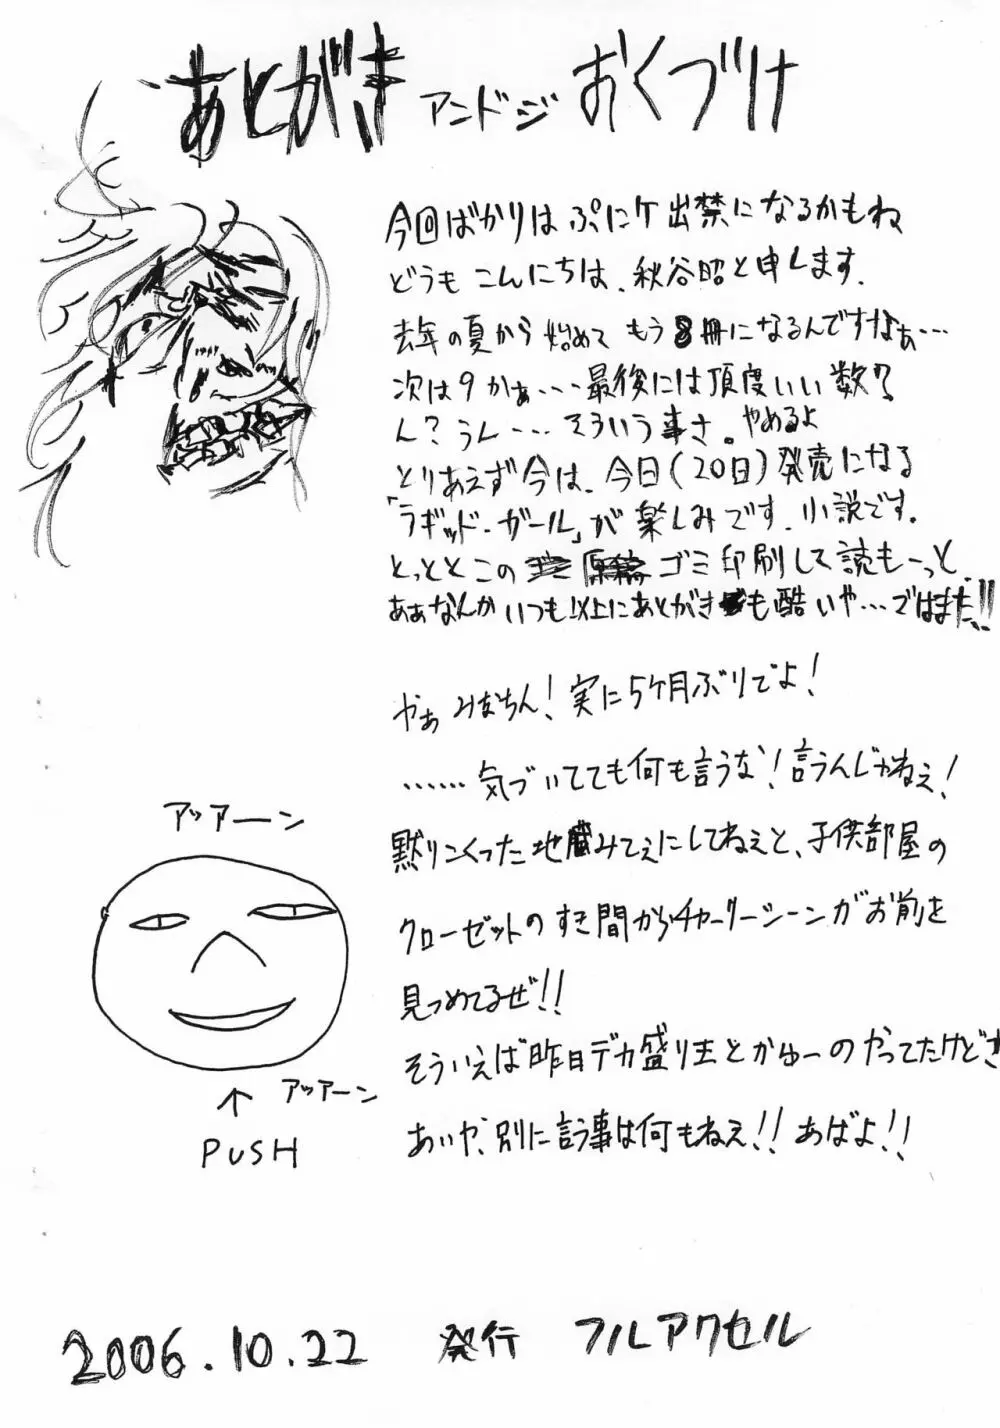 あとがき アンドジ おくづけ
今回ばかりは ぷにケ出禁になるかもね
どうも こんにちは、秋谷昭と申します。
去年の夏から 始めて もう8冊になるんですなぁ…
次は9かぁ…最後には頂度いい数?
ん?うん…そういう事さ。やめるよ
とりあえず今は、今日(20日)発売になる
「ラギッド・ガール」が楽しみです、小説です。
とっとと この ゴミ印刷して読もーっと
ああなんか いつも以上にあとがきも酷いや…ではまた!!
やぁ みなちん!実に5ケ月ぶりでよ!
……気づいてても何も言うな!言うんじゃねぇ!
黙りこくった地蔵みてぇにしてねぇと、子供部屋の
クローゼットのすき間からチャーリーシーンがお前を
見つめてるぜ!!
そういえば昨日デカ盛り王とかゆーのやってたけどさ
あいや、別に言う事は何もねぇ!!あばよ!!
アッアーン
アッアーン
PUSH
2006.10.22 発行 フルアクセル